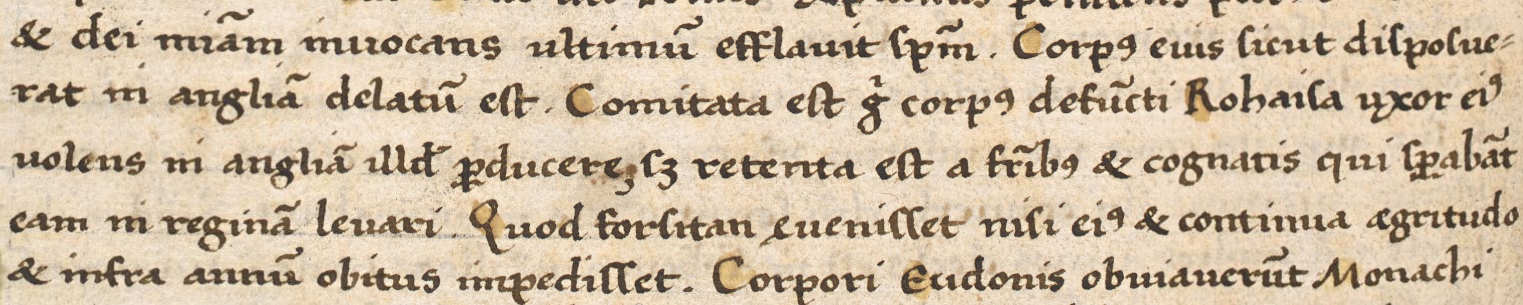 & dei miām inuocans ultimū efflauit sp̄m. Corpꝰ eius sicut disposue-
rat in angliā delatū est. Comitata est gͥ corpꝰ defūcti Rohaisa uxor eiꝰ
uolens in angliā illđ ꝑducere, sꝫ retenta est a fr̄ibꝰ & cognatis qui sꝑabāt
eam in reginā leuari. Quod forsitan euenisset nisi eiꝰ & continua ægritudo
& infra annū obitus impedisset. Corpori Eudonis obuiauerūt Monachi